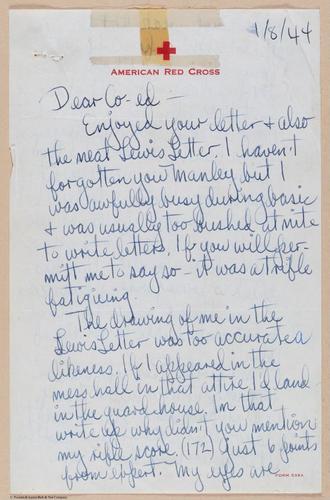 1/8/44
AMERICAN RED CROSS
Dear Co-ed -
Enjoyed your letter & also
the neat Lewis Letter. I haven't
forgotten you Manley but I
was awfully busy during basic
& was usually too bushed at nite
to write letters. If you will per-
mitt me to say so - it was a trifle
fatiguing.
The drawing of me in the
Lewis Letter was too accurate a
likeness. If I appeared in the
mess hall in that attire I'd land
in the guard house. In that
write up why didn't you mention
my rifle score. (172) Just 6 points
from expert. My eyes are
FORM 539A